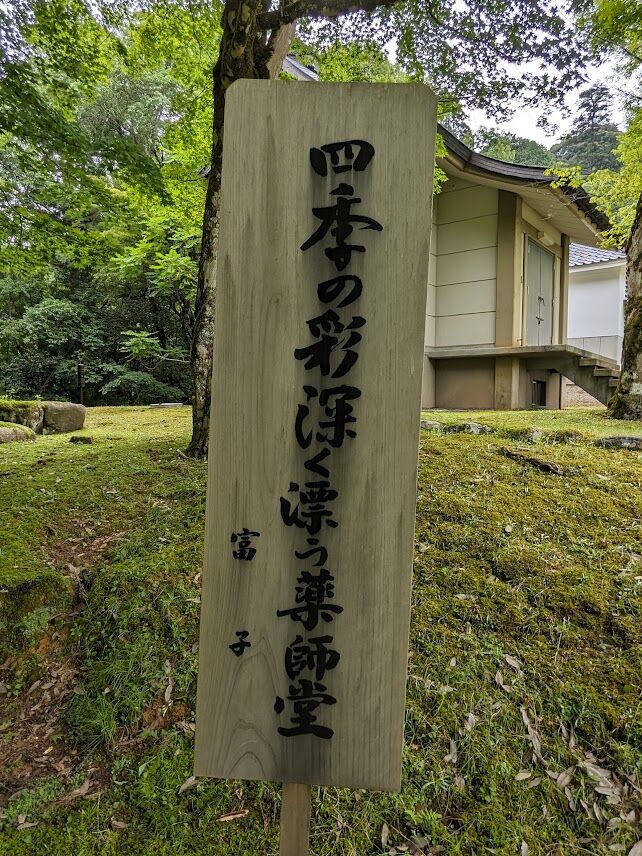 四季の彩深く漂う薬師堂
富子